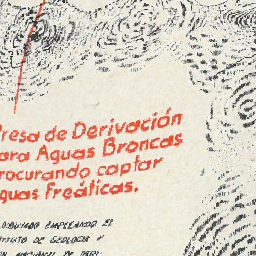 Presa de Derivación
para Aguas Broncas
procurando captar
Aguas Freáticas.
DIBUJADO EMPLEANDO EL
INSTITUTO DE GEOLOGIA Y
NACIONAL DE